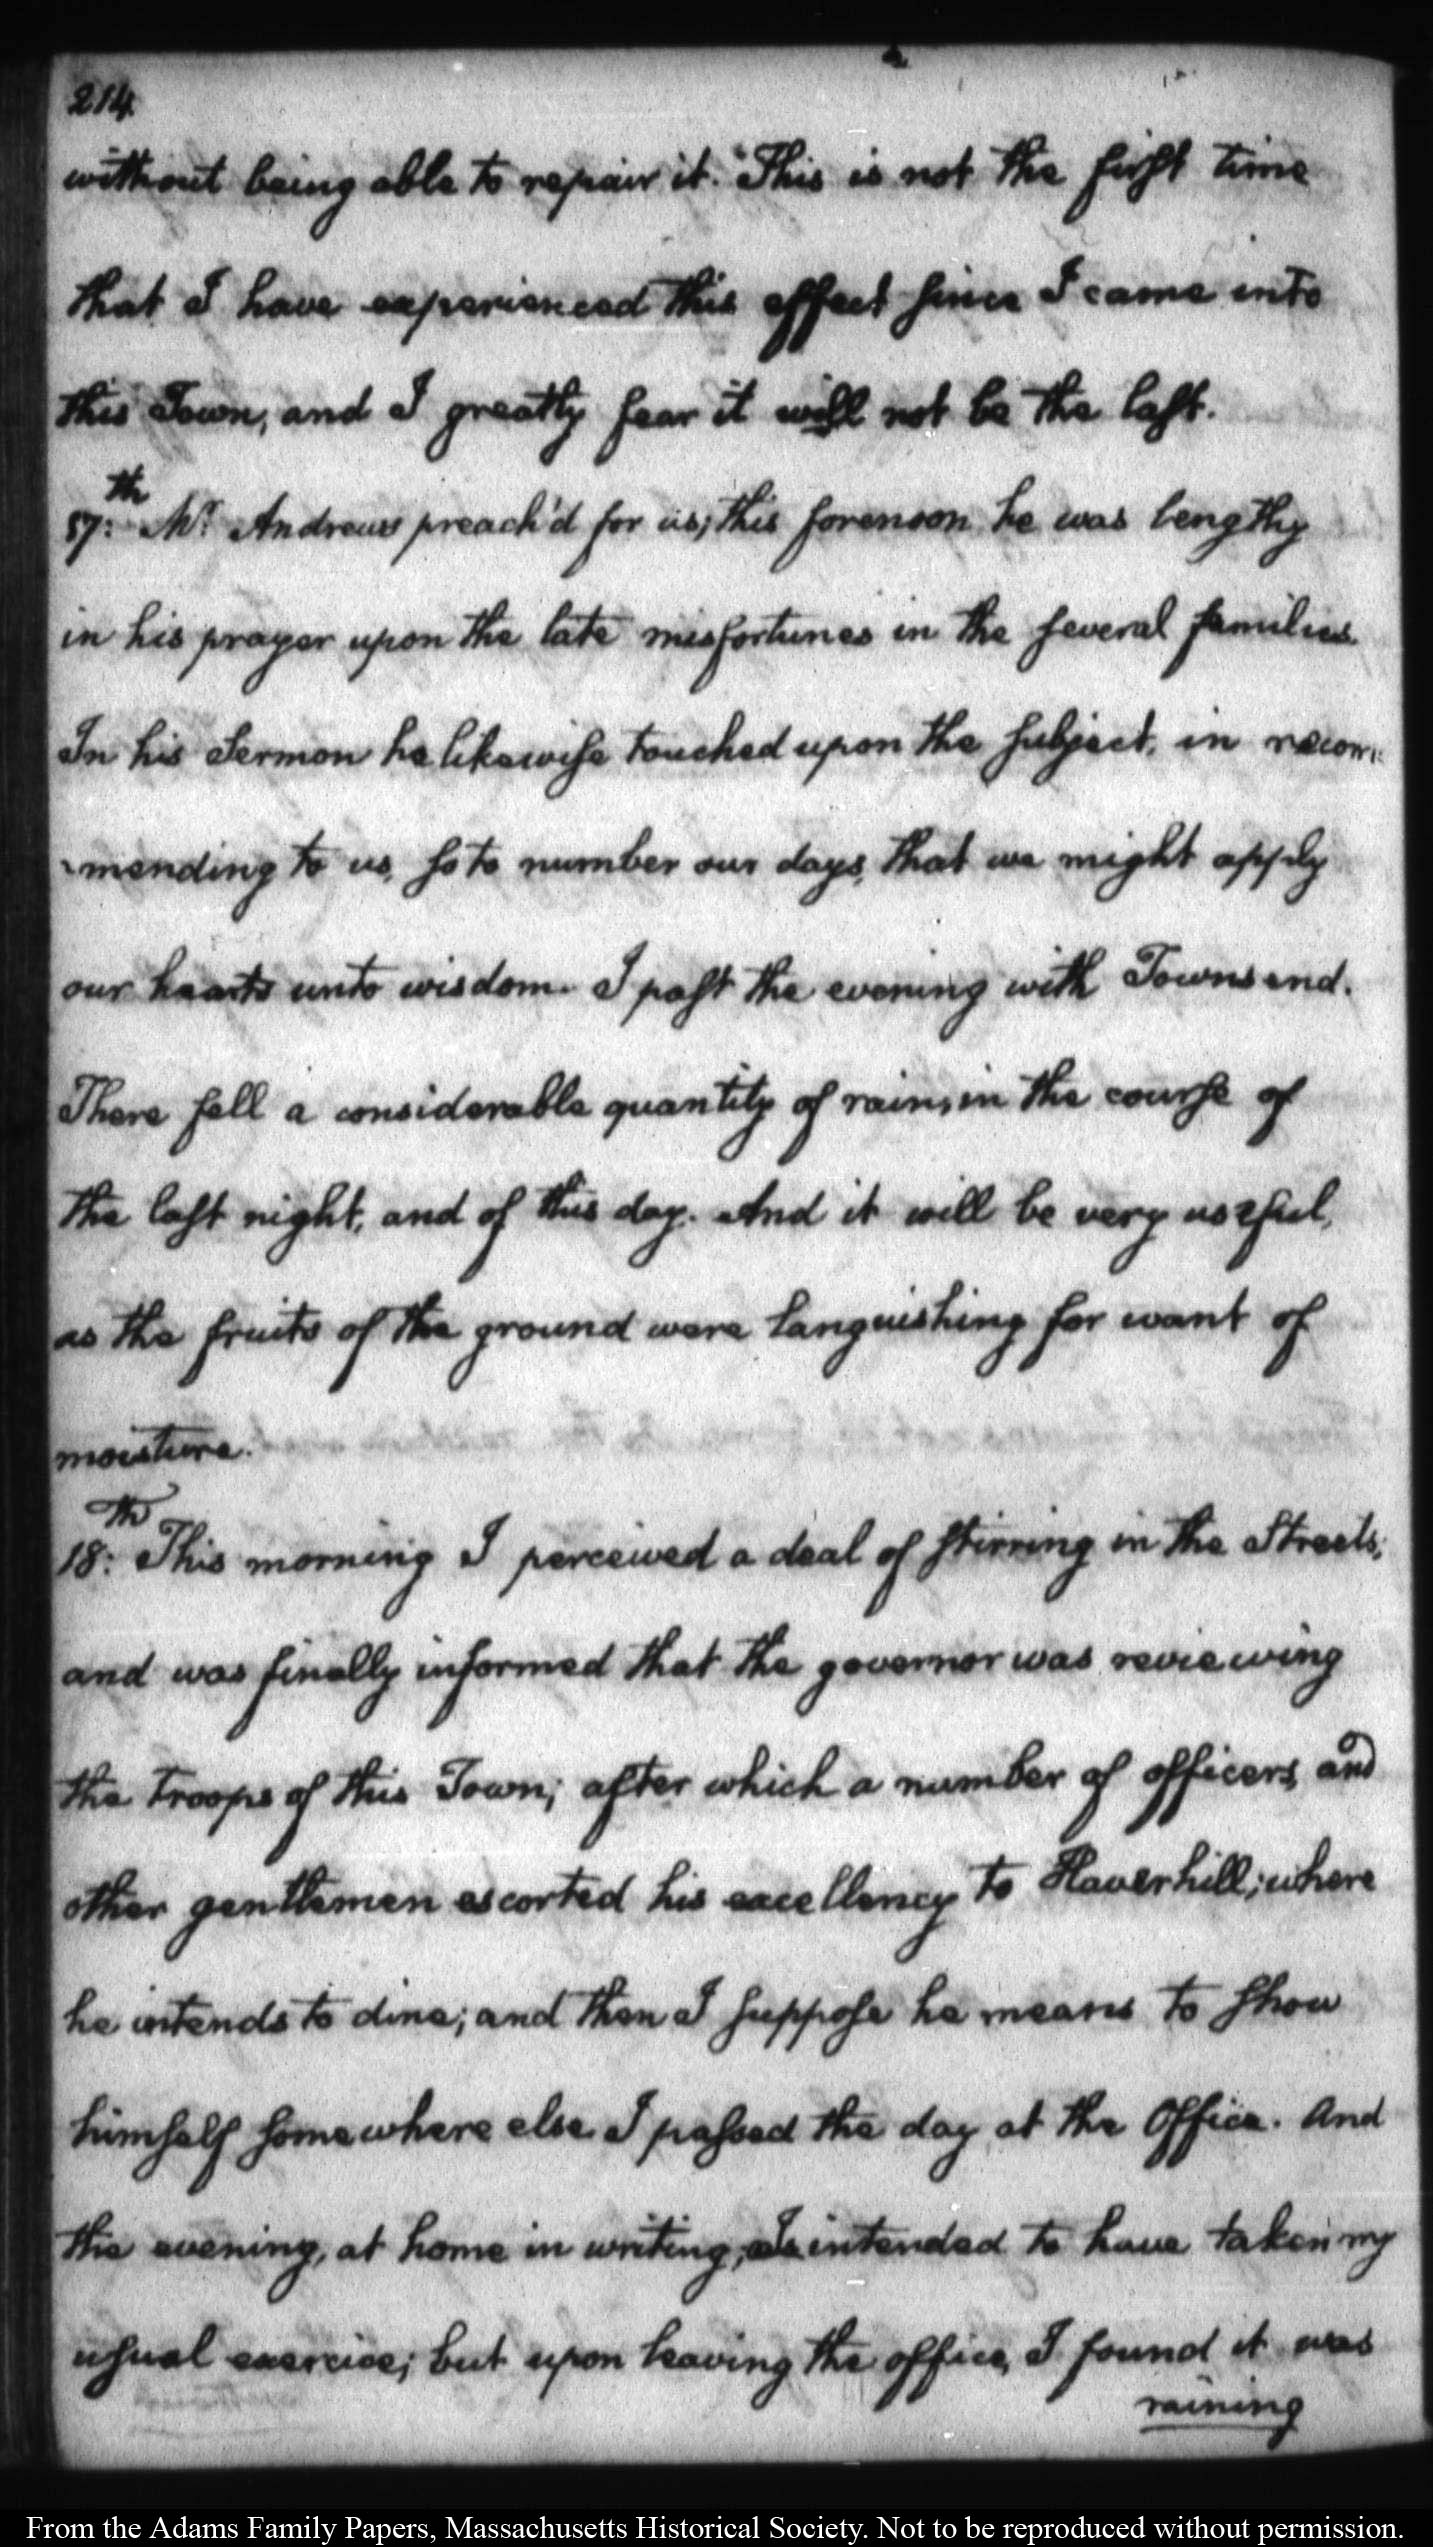 214
without being able to repair it. This is not the first time
that I have experienced this effect since I came into
this Town, and I greatly fear it will not be the last.
17:th Mr. Andrews preach'd for us; this forenoon he was lengthy
in his prayer upon the late misfortunes in the several families.
In his Sermon he likewise touched upon the subject, in recom-
-mending to us, so to number our days, that we might apply
our hearts unto wisdom. I past the evening with Townsend.
There fell a considerable quantity of rain, in the course of
the last night, and of this day. And it will be very useful,
as the fruits of the ground were languishing for want of
moisture.
18:th This morning I perceived a deal of stirring in the Streets;
and was finally informed that the governor was reviewing
the troops of this Town; after which a number of officers, and
other gentlemen escorted his excellency to Haverhill; where
he intends to dine; and then I suppose he means to show
himself somewhere else. I passed the day at the Office. And
the evening, at home in writing, I intended to have taken my
usual exercise; but upon leaving the office, I found it was
raining
From the Adams Family Papers, Massachusetts Historical Society. Not to be reproduced without permission.